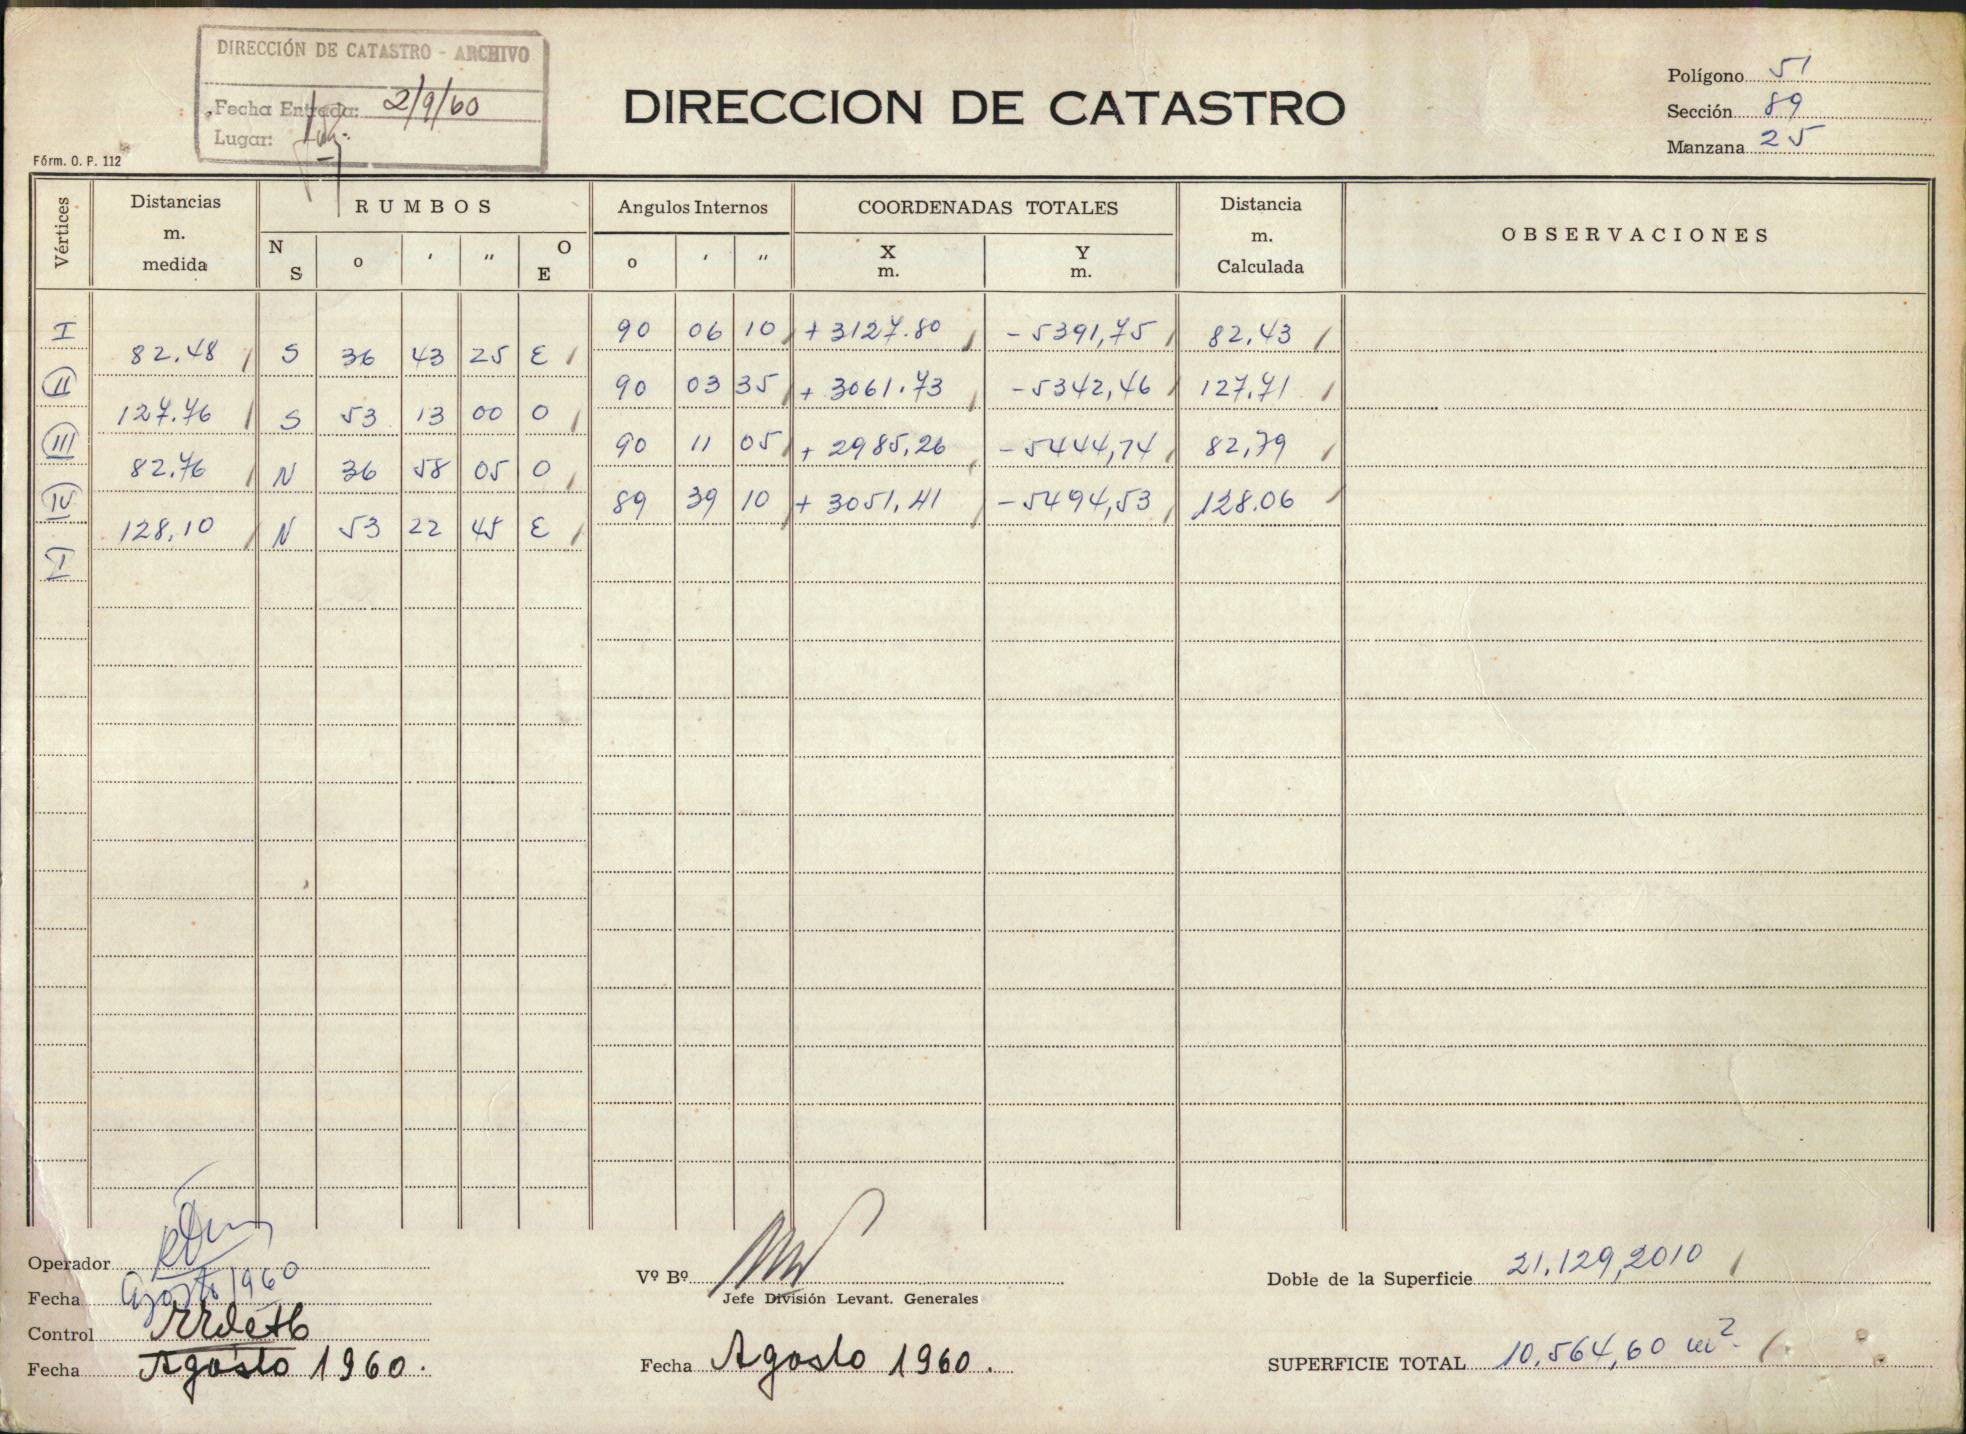 DIRECCIÓN DE CATASTRO - ARCHIVO
Fecha Entrada: 2/9/60
Lugar:
Fórm. O. P. 112
DIRECCION DE CATASTRO
Polígono 51
Sección 89
Manzana 25
Vértices Distancias m. medida RUMBOS Angulos Internos COORDENADAS TOTALES Distancia m. Calculada OBSERVACIONES
N S o ' " O E o ' " X m. Y m.
I 90 06 10 + 3127.80 - 5391,75 82,43
82,48 S 36 43 25 E
II 90 03 35 + 3061.73 - 5342,46 127,71
127.76 S 53 13 00 O
III 90 11 05 + 2985,26 - 5444,74 82,79
82.76 N 36 58 05 O
IV 89 39 10 + 3051,41 - 5494,53 128.06
128,10 N 53 22 45 E
I
Operador
Fecha Agosto 1960
Control
Fecha Agosto 1960.
Vº Bº
Jefe División Levant. Generales
Fecha Agosto 1960.
Doble de la Superficie 21.129,2010
SUPERFICIE TOTAL 10.564,60 m2.